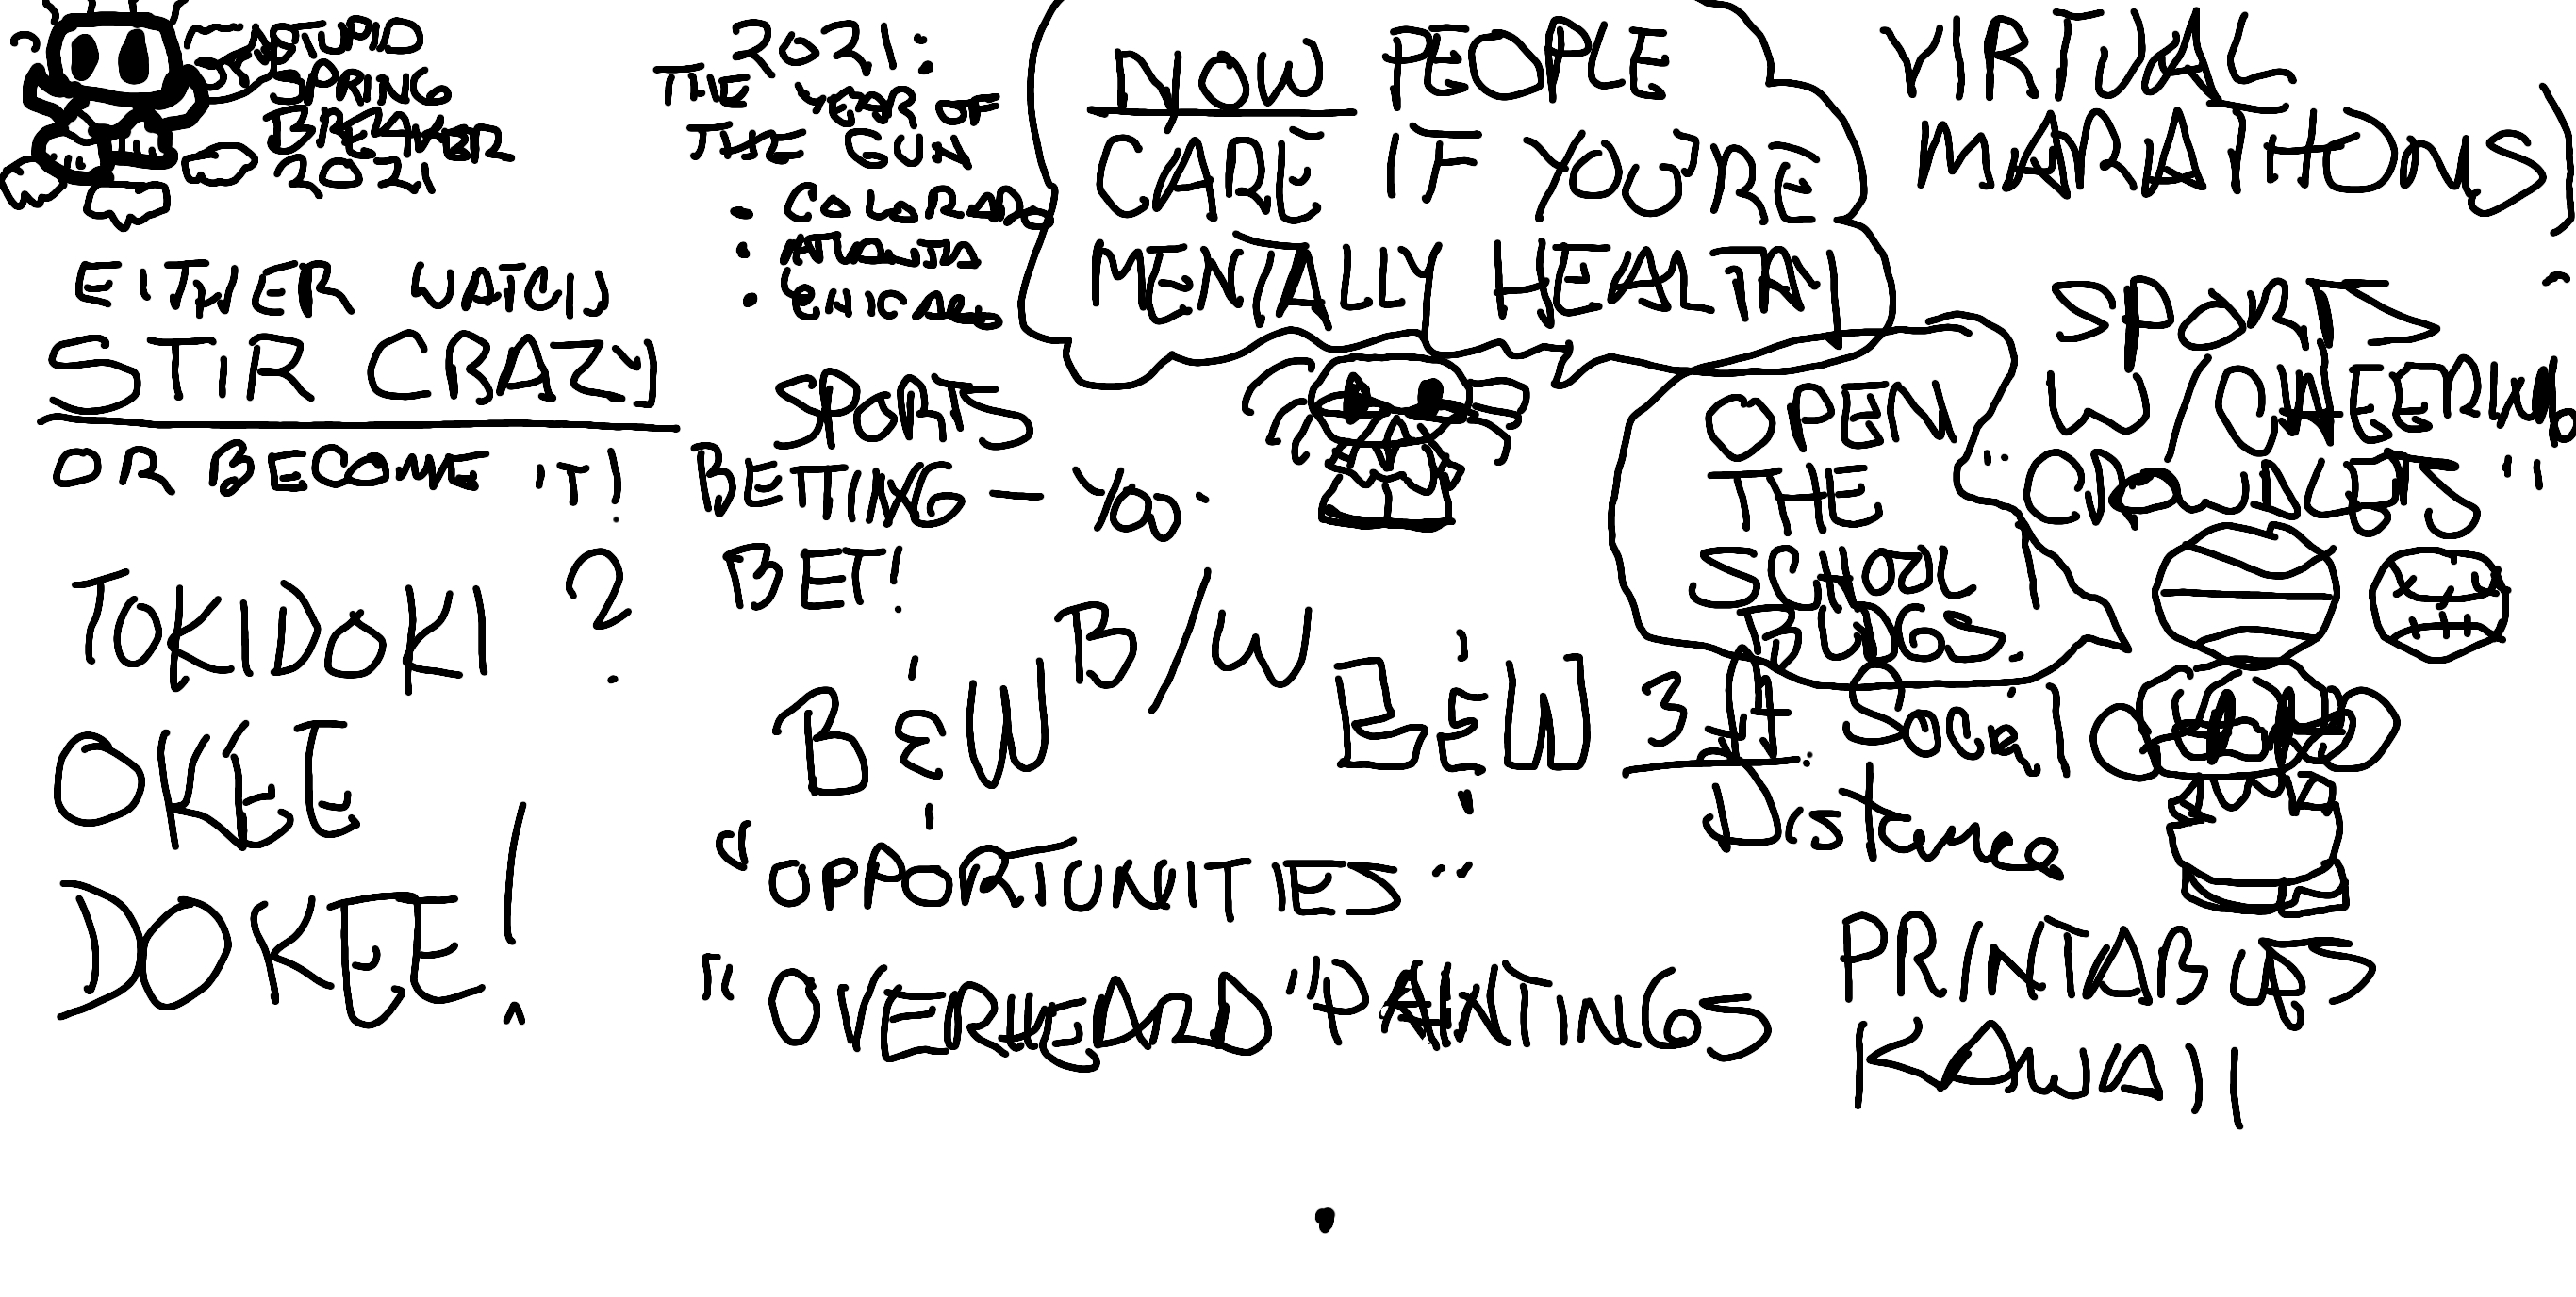 STUPID
SPRING
BREAKER
2021
EITHER WATCH
STIR CRAZY
OR BECOME IT!
TOKIDOKI ?
OKEE
DOKEE!
2021:
THE YEAR OF
THE GUN
• COLORADO
• ATLANTA
• CHICAGO
SPORTS
BETTING - YOU
BET!
NOW PEOPLE
CARE IF YOU'RE
MENTALLY HEALTHY
B/W
B & W
B & W
"OPPORTUNITIES"
"OVERHEARD" PAINTINGS
OPEN
THE
SCHOOL
BLDGS.
3 ft. Social
Distance
VIRTUAL
MARATHONS)
SPORTS
W/CHEERING
"CROWDLETS"
PRINTABLES
KAWAII